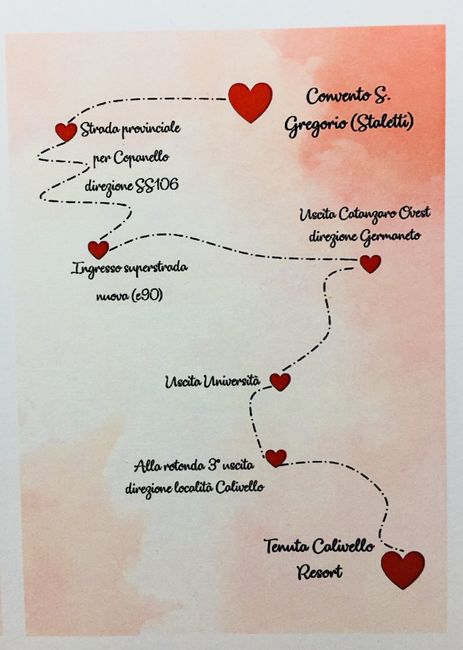 Convento S.
Gregorio (Staletti)
Strada provinciale
per Copanello
direzione SS106
Uscita Catanzaro Ovest
direzione Germaneto
Ingresso superstrada
nuova (e90)
Uscita Università
Alla rotonda 3° uscita
direzione località Calivello
Tenuta Calivello
Resort